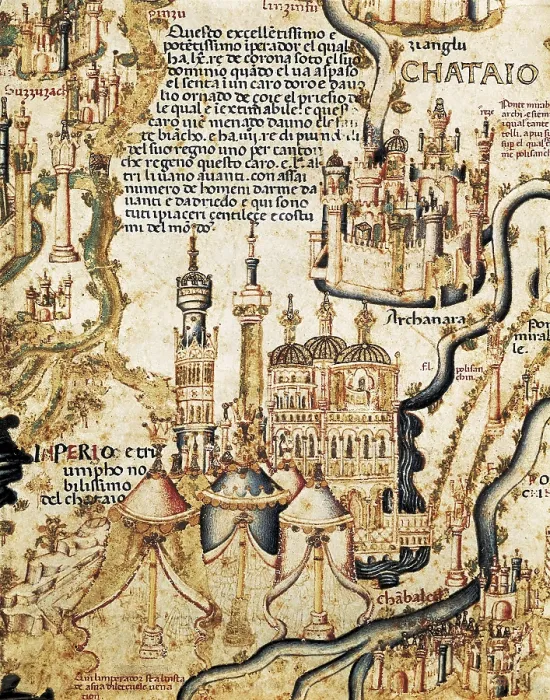 pinzu
linzintu
Questo excellētissimo e
potētissimo īperador el qual
ha .lx. re de corona soto el suo
dominio quādo el va a spaso
el senta ī un caro doro e davo
lio ornado de çoie el priesio de
le qual e īextimabile e questo
caro vie menado da uno elefan
te biācho. e ha .iiij. re di piu nobili
del suo regno uno per canton
che regeno questo caro. e l. al
tri li uano auanti. con assai
numero de homeni darme da
uanti e da driedo e qui sono
tuti i piaceri gentilece e costu
mi del mōdo
zianglu
CHATAIO
Suzuzach
Ponte mirab
Archanara
por
mirab
le.
fl. polisan
chin
INPERIO e tri
umpho no
bilissimo
del chataio
chābalech